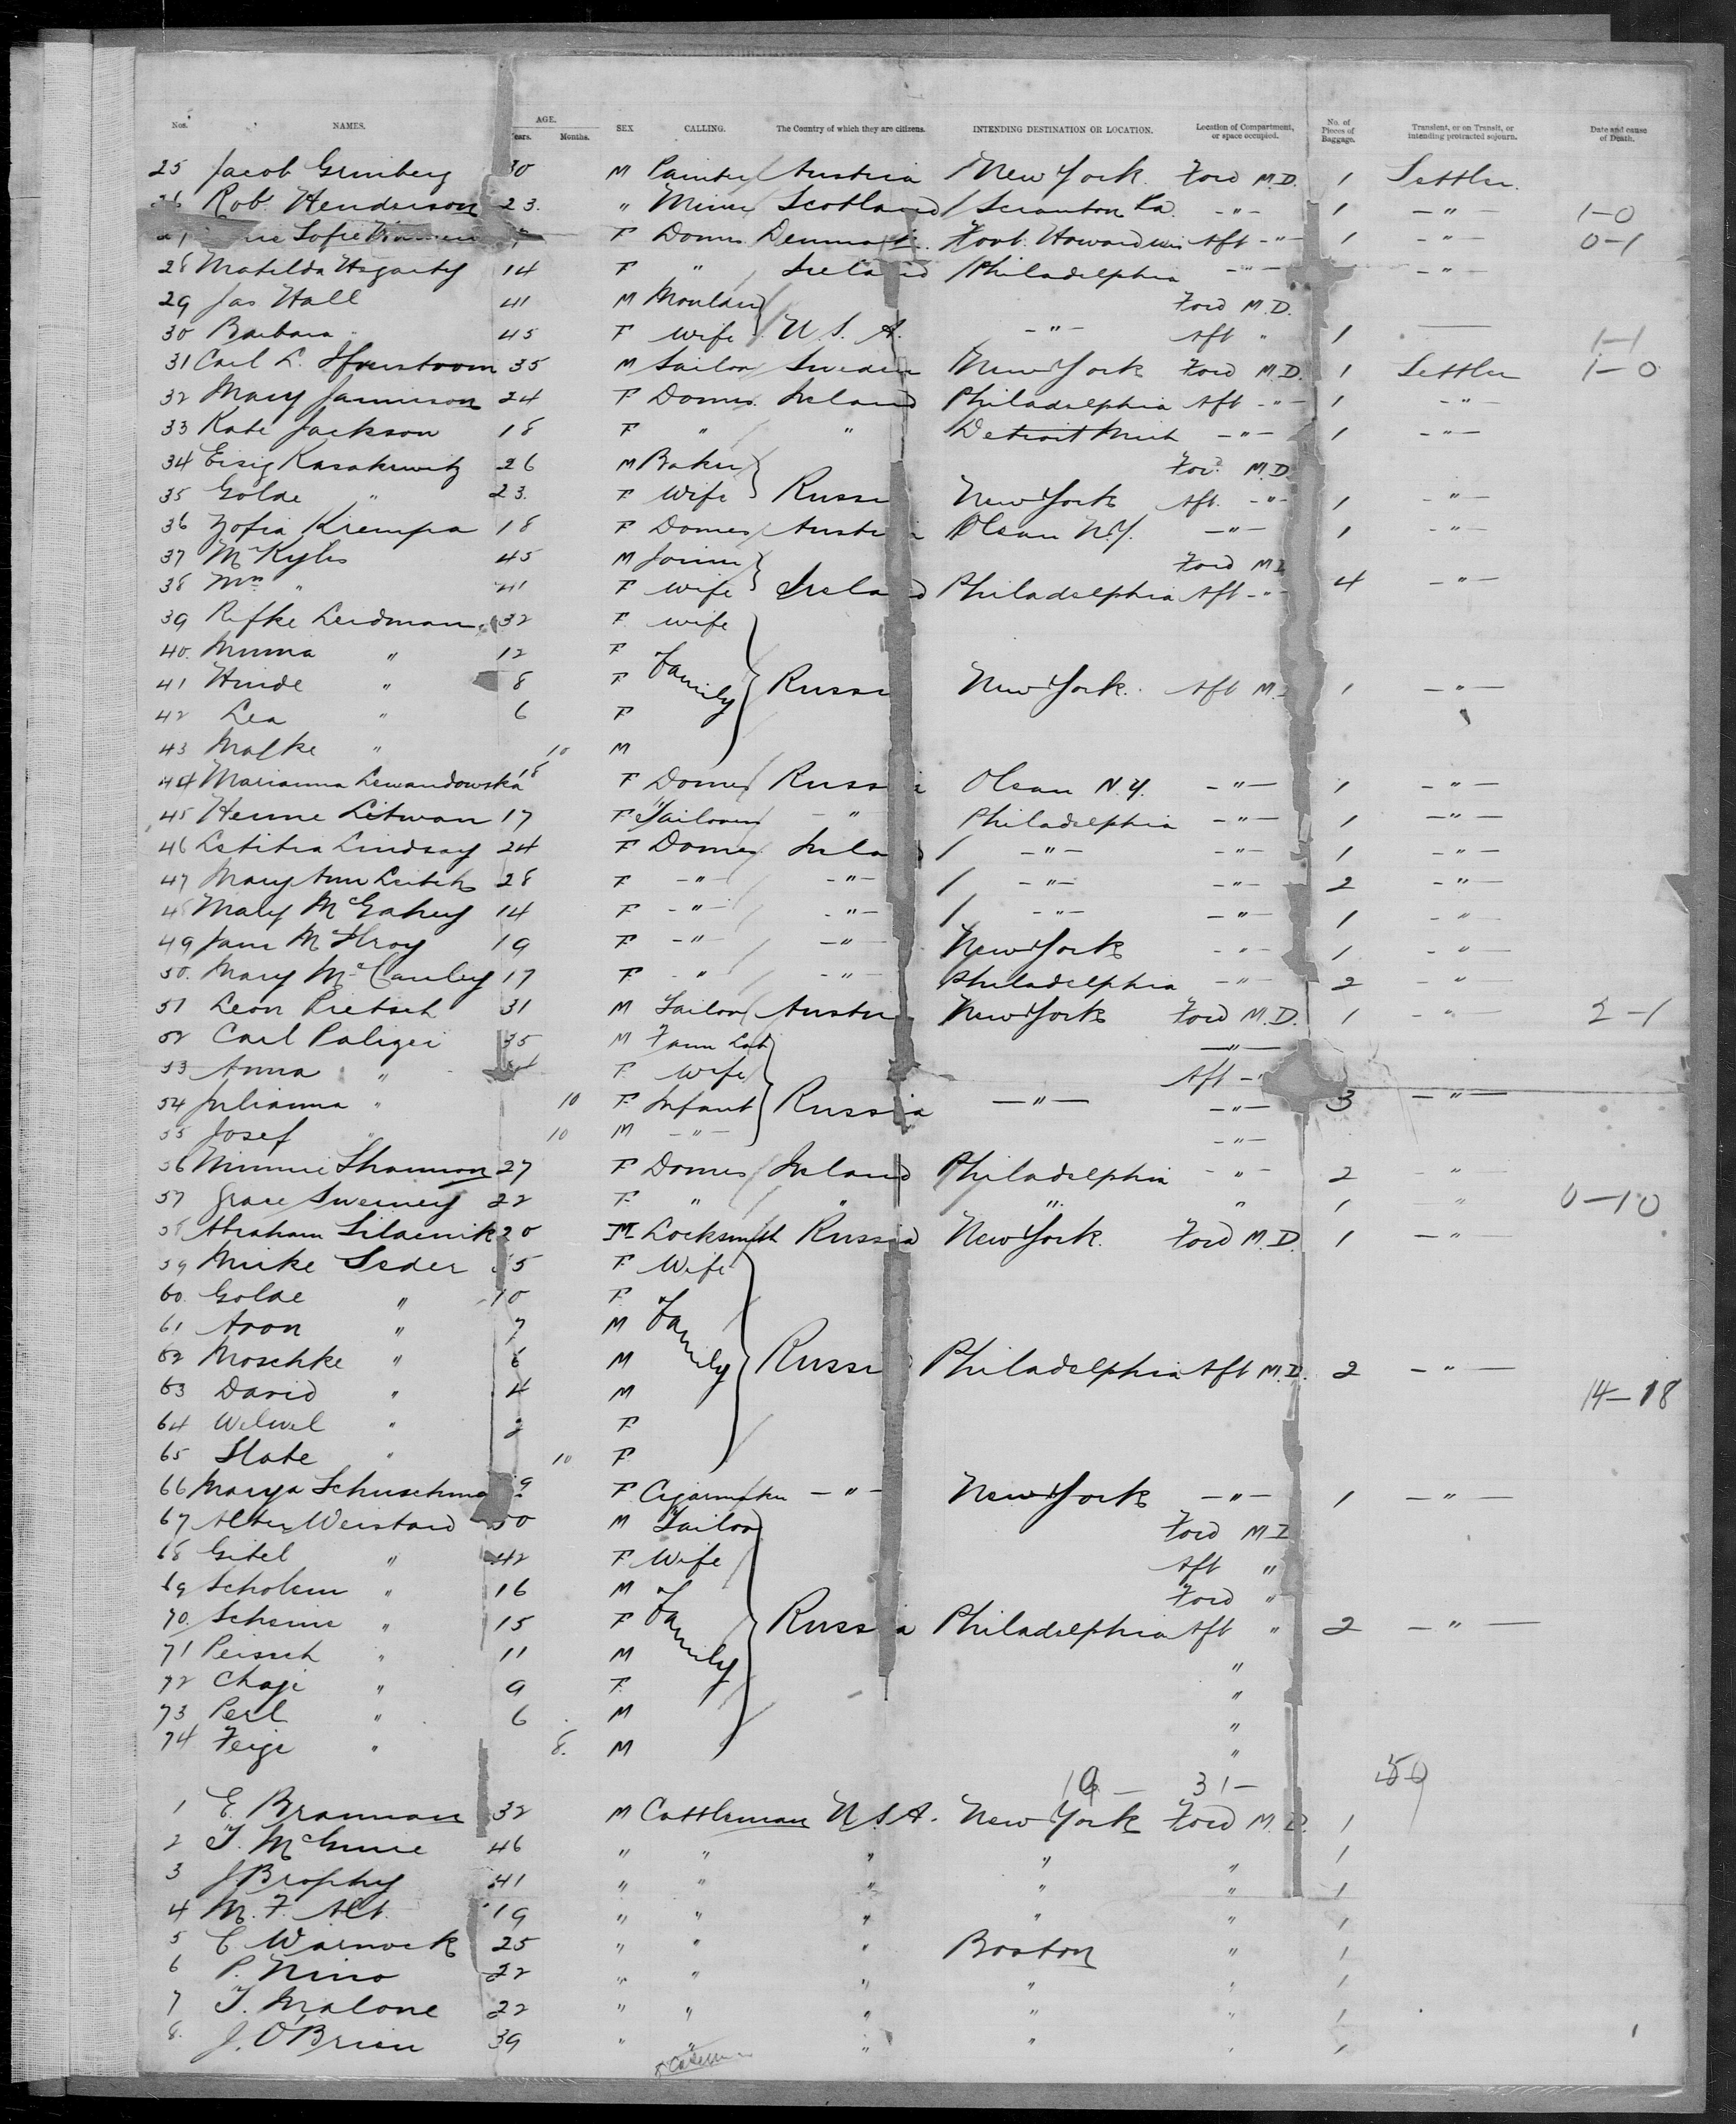 Nos. NAMES. AGE. Years. Months. SEX CALLING. The Country of which they are citizens. INTENDING DESTINATION OR LOCATION. Location of Compartment, or space occupied. No. of Pieces of Baggage. Transient, or on Transit, or intending protracted sojourn. Date and cause of Death.
25 Jacob Grinberg 30 M Painter Austria New York Ford M.D. 1 Settler.
26 Rob. Henderson 23. " Miner Scotland Scranton Pa. -"- 1 -"- 1-0
Sofie F Domes Denmark Fort Howard Wis Aft -"- 1 -"- 0-1
28 Matilda Hagarty 14 F " Ireland Philadelphia -"- -"-
29 Jas Hall 41 M Moulder Ford M.D.
30 Barbara " 45 F Wife U.S.A. -"- Aft " 1 — 1-1
31 Carl L. 35 M Sailor Sweden New York Ford M.D. 1 Settler 1-0
32 Mary Jamieson 24 F Domes. Ireland Philadelphia Aft -"- 1 -"-
33 Kate Jackson 18 F " " Detroit Mich -"- 1 -"-
34 Eisig Kasakewitz 26 M Baker Ford M.D.
35 Golde " 23. F Wife Russi New York Aft. -"- 1 -"-
36 Zofia Krempa 18 F Domes Austri Olean N.Y. -"- 1 -"-
37 McKyles 45 M Joiner Ford M.D
38 Mrs " 41 F Wife Ireland Philadelphia Aft -"- 4 -"-
39 Rifke Leidman 32 F wife
40. Minna " 12 F Family
41 Hinde " 8 F Russi New York. Aft M. 1 -"-
42 Lea " 6 F
43 Malke " 10 M
44 Marianna Lewandowska 18 F Domes Russia Olean N.Y. -"- 1 -"-
45 Henne Litwan 17 F Tailoress - " Philadelphia -"- 1 -"-
46 Letitia Lindsay 24 F Domes Irela -"- -"- 1 -"-
47 Mary Ann Leitch 28 F -"- -"- -"- -"- 2 -"-
48 Mary McGahey 14 F -"- -"- -"- -"- 1 -"-
49 Jane McIlroy 19 F -"- -"- New York -"- 1 -"-
50. Mary McCauley 17 F -"- -"- Philadelphia -"- 2 -"-
51 Leon Pretsch 31 M Tailor Austri New York Ford M.D. 1 -"- 2-1
52 Carl Paliger 35 M Farm Lab -"-
53 Anna " F Wife Aft -"
54 Julianna " 10 F Infant Russia -"- -"- 3 -"-
55 Josef " 10 M -"- -"-
56 Minnie Shannon 27 F Domes Ireland Philadelphia -"- 2 -"-
57 Grace Sweeney 22 F " " " " 1 " 0-10
58 Abraham 20 M Locksmith Russia New York. Ford M.D. 1 -"-
59 Mirke Seder 5 F Wife
60. Golde " 10 F Family
61 Aron " 7 M
62 Moschke " 6 M Russi Philadelphia Aft M.D. 2 -"-
63 David " 4 M 14-18
64 Welwel " 2 F
65 Slate " 10 F
66 Marya 9 F Cigarmaker -"- New York -"- 1 -"-
67 50 M Tailor Ford M.D
68 Gitel " 42 F Wife Aft "
69 Scholem " 16 M Family Ford "
70. Scheine " 15 F Russia Philadelphia Aft " 2 -"-
71 " 11 M "
72 Chaje " 9 F "
73 Perl " 6 M "
74 Feige " 8. M "
19 - 31 - 50
1 E. Brannan 32 M Cattleman U.S.A. New York Ford M.D. 1
2 T. McGuire 46 " " " " " 1
3 J Brophy 41 " " " " " 1
4 M. F. Alt. 19 " " " " " 1
5 C Warnock 25 " " " Boston " 1
6 P. Nino 22 " " " " " 1
7 T. Malone 22 " " " " " 1
8. J. O'Brien 39 " " " " " 1